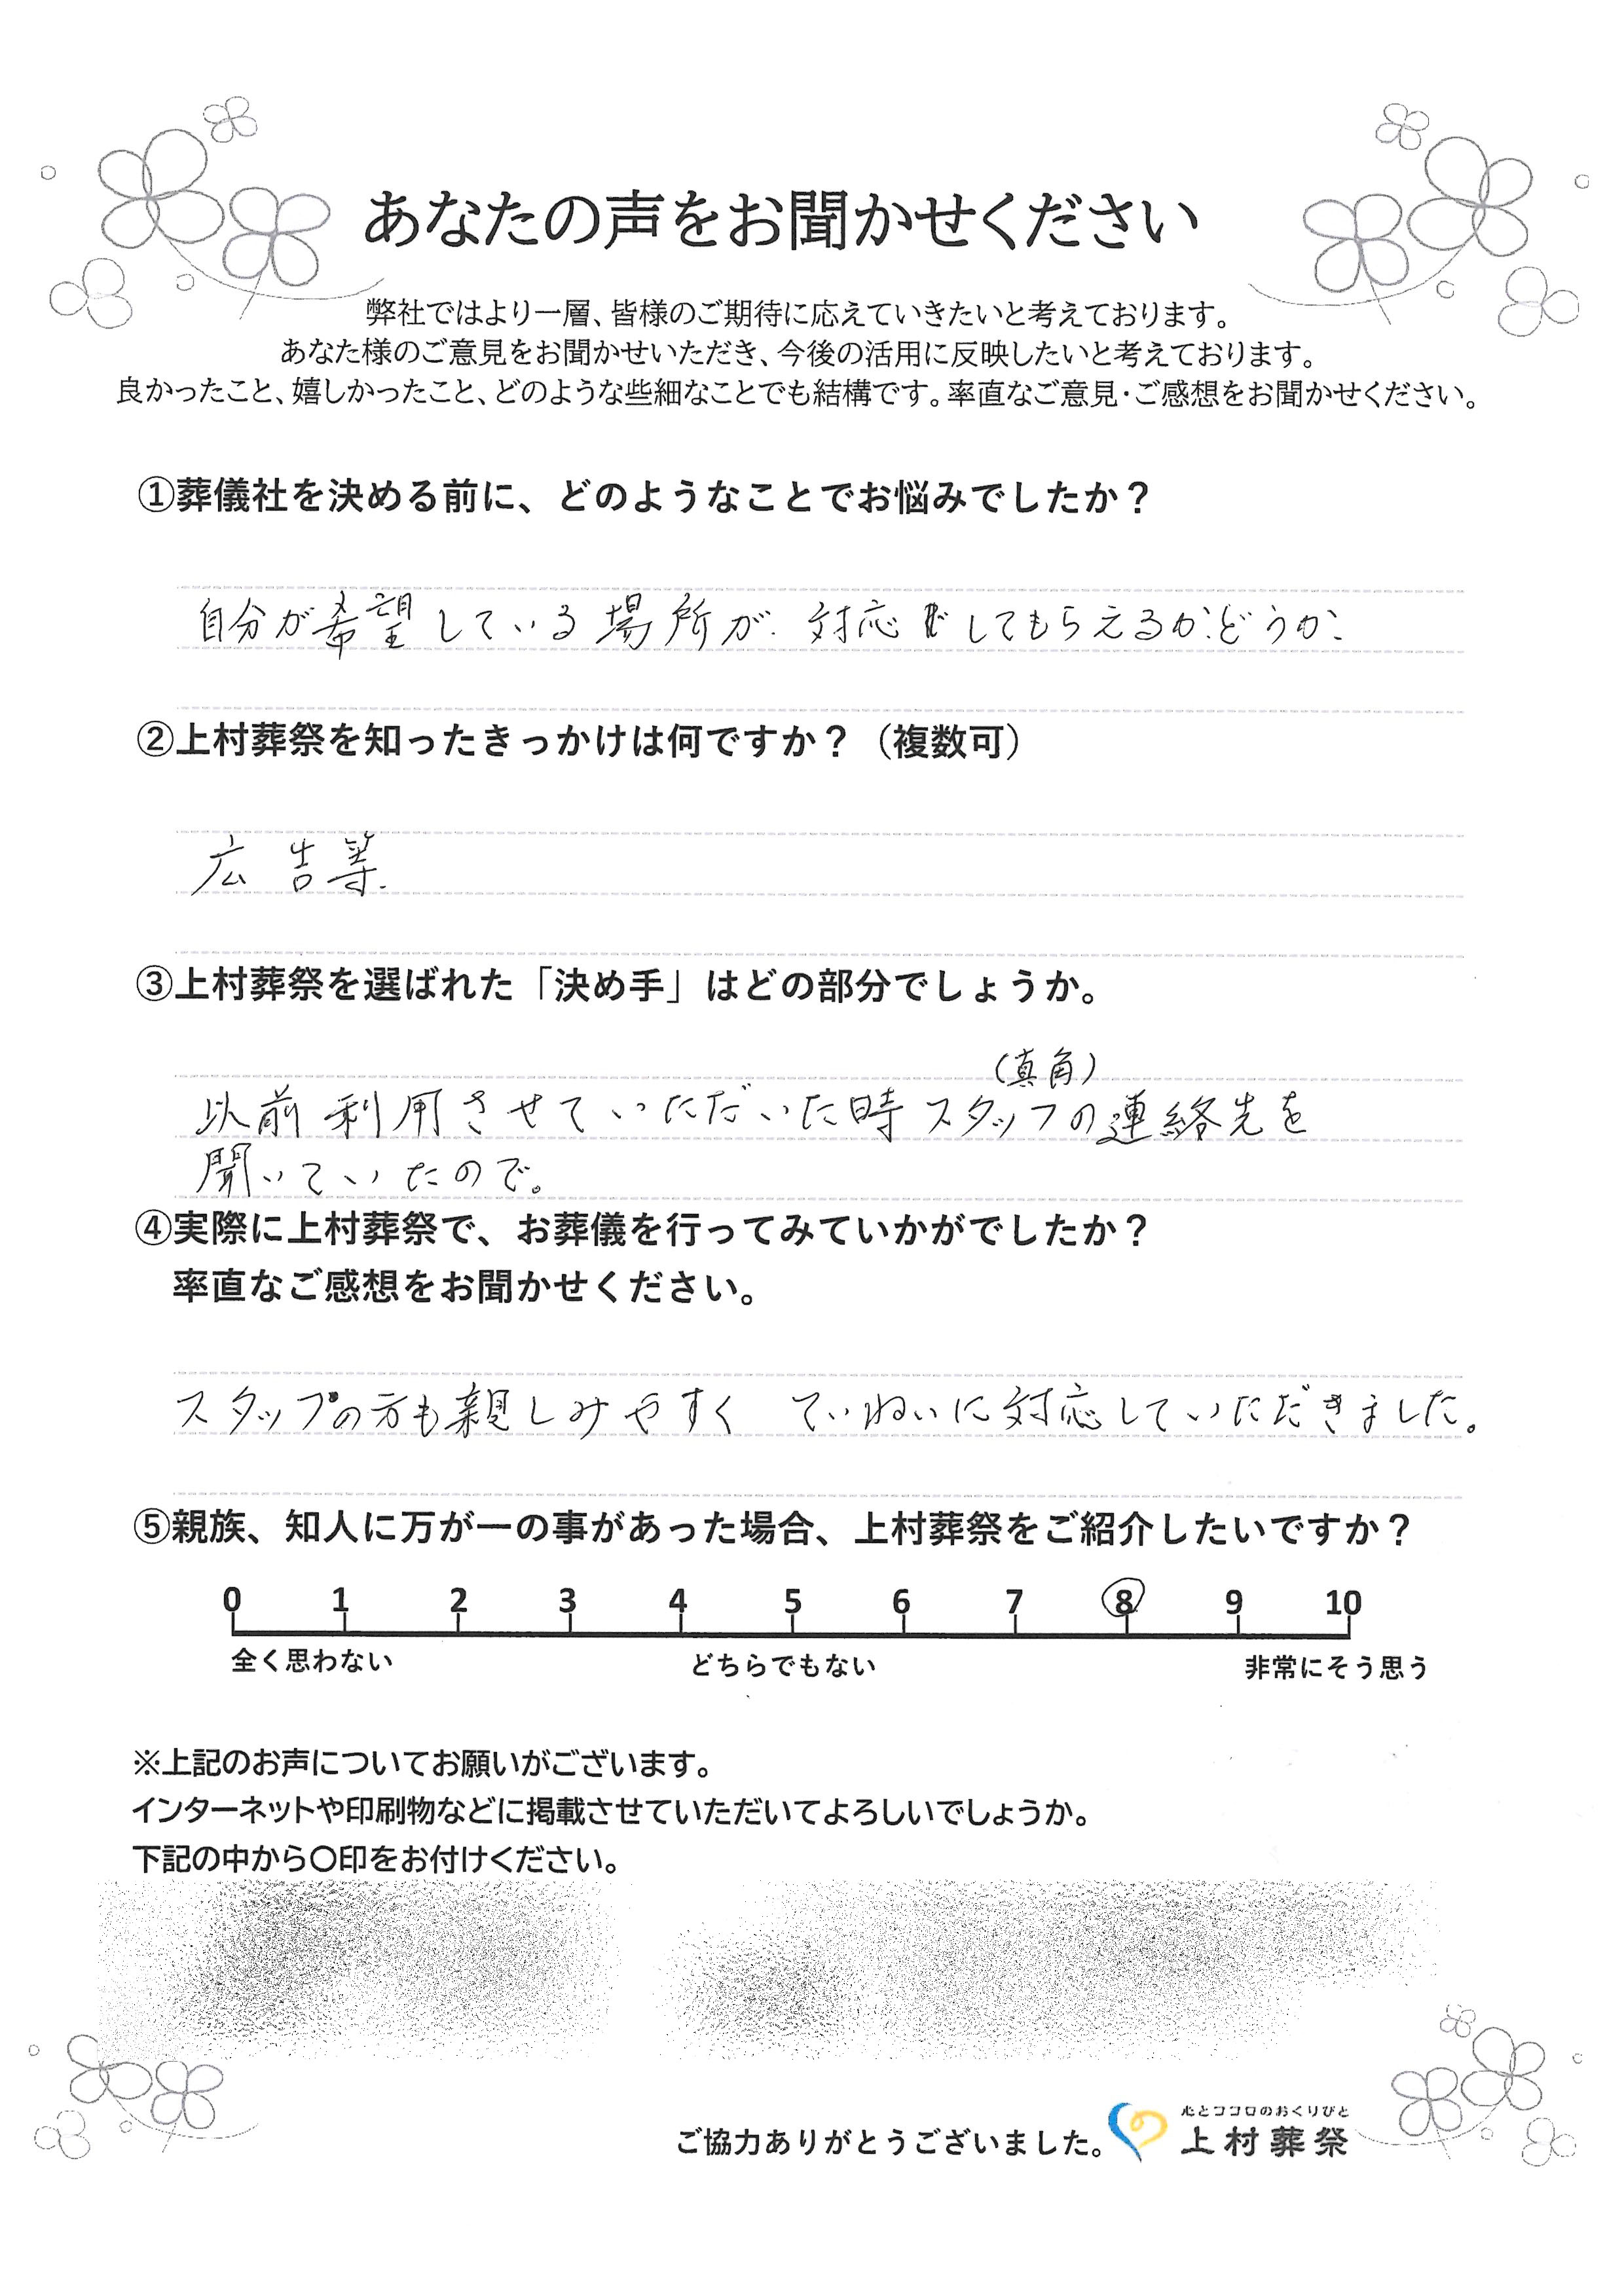 あなたの声をお聞かせください
弊社ではより一層、皆様のご期待に応えていきたいと考えております。
あなた様のご意見をお聞かせいただき、今後の活用に反映したいと考えております。
良かったこと、嬉しかったこと、どのような些細なことでも結構です。率直なご意見・ご感想をお聞かせください。
①葬儀社を決める前に、どのようなことでお悩みでしたか？
自分が希望している場所が、対応してもらえるかどうか、
②上村葬祭を知ったきっかけは何ですか？（複数可）
広告等.
③上村葬祭を選ばれた「決め手」はどの部分でしょうか。
（真角）
以前利用させていただいた時スタッフの連絡先を
聞いていたので。
④実際に上村葬祭で、お葬儀を行ってみていかがでしたか？
率直なご感想をお聞かせください。
スタッフの方も親しみやすく ていねいに対応していただきました。
⑤親族、知人に万が一の事があった場合、上村葬祭をご紹介したいですか？
0 1 2 3 4 5 6 7 8 9 10
全く思わない どちらでもない 非常にそう思う
※上記のお声についてお願いがございます。
インターネットや印刷物などに掲載させていただいてよろしいでしょうか。
下記の中から〇印をお付けください。
心とココロのおくりびと
ご協力ありがとうございました。 上村葬祭